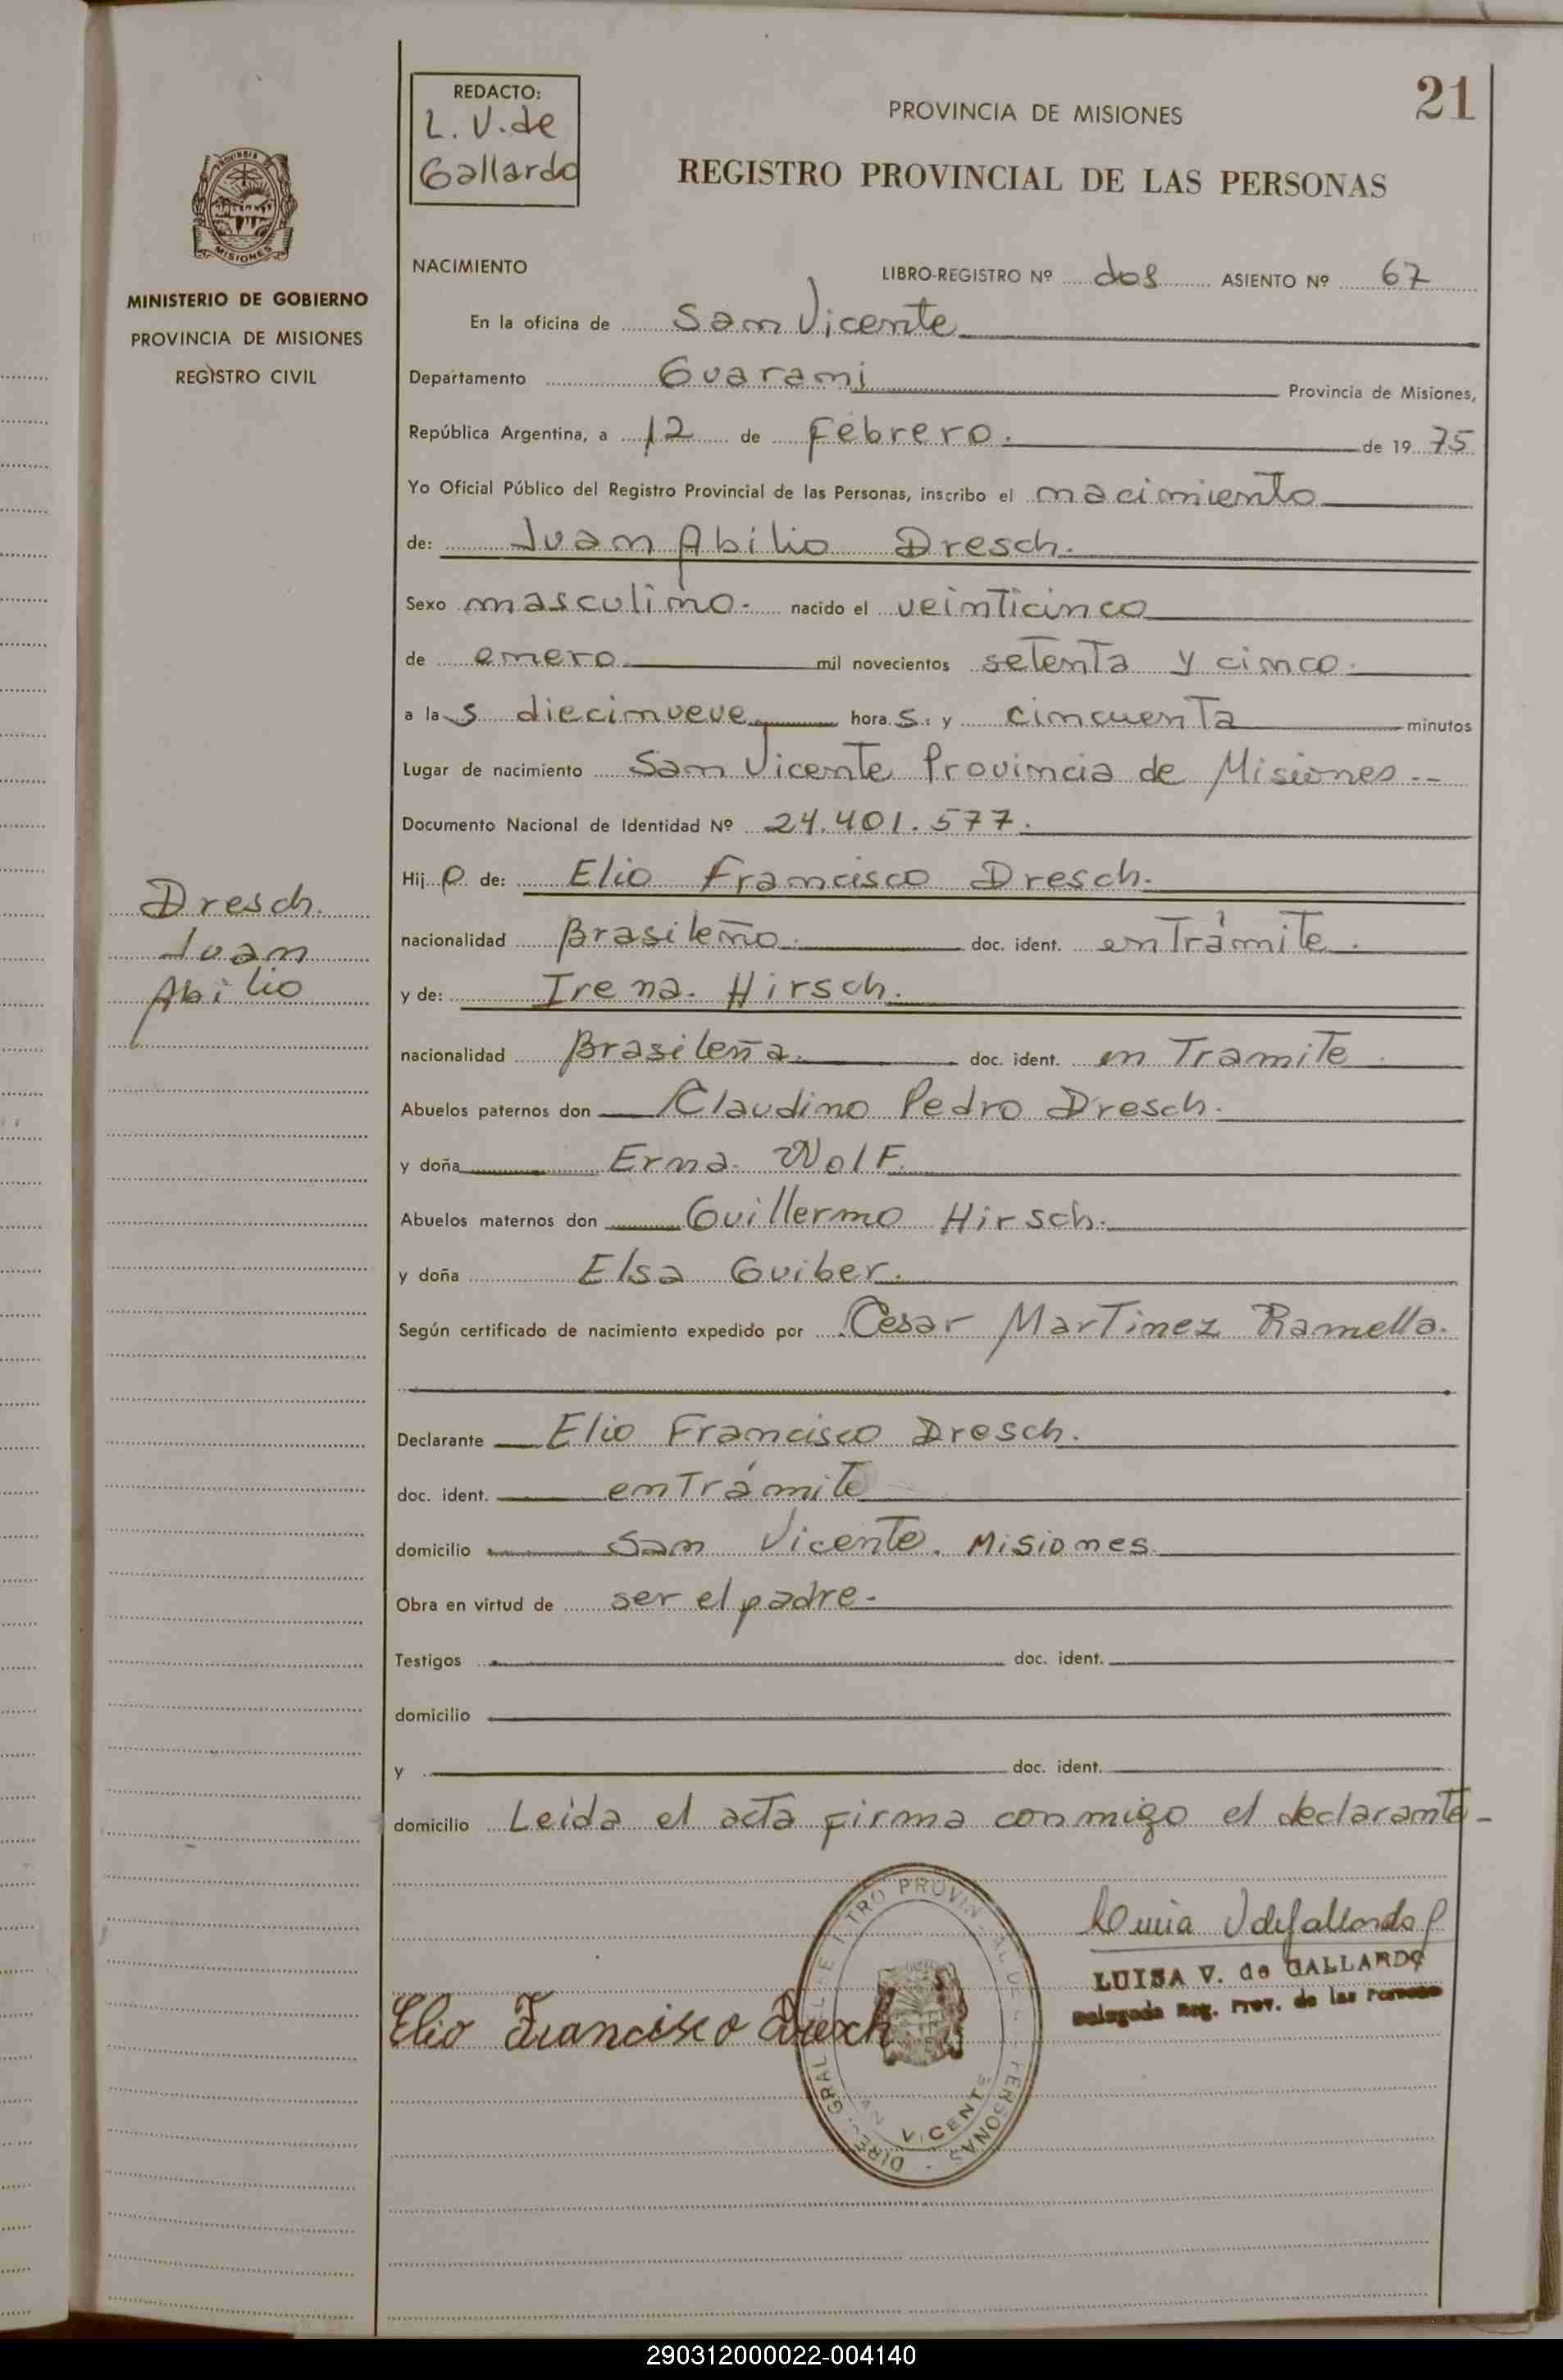 21
REDACTO:
L. V. de
Gallardo
PROVINCIA DE MISIONES
REGISTRO PROVINCIAL DE LAS PERSONAS
PROVINCIA
MISIONES
MINISTERIO DE GOBIERNO
PROVINCIA DE MISIONES
REGISTRO CIVIL
NACIMIENTO
LIBRO-REGISTRO Nº dos ASIENTO Nº 67
En la oficina de San Vicente
Departamento Guarani Provincia de Misiones,
República Argentina, a 12 de Febrero. de 19 75
Yo Oficial Público del Registro Provincial de las Personas, inscribo el nacimiento
de: Juan Abilio Dresch.
Sexo masculino. nacido el veinticinco
de enero mil novecientos setenta y cinco.
a las diecinueve hora s. y cincuenta minutos
Lugar de nacimiento San Vicente Provincia de Misiones --
Documento Nacional de Identidad Nº 24.401.577.
Hijo de: Elio Francisco Dresch.
nacionalidad Brasileño. doc. ident. en Trámite.
y de: Irena. Hirsch.
nacionalidad Brasileña. doc. ident. en Tramite.
Abuelos paternos don Claudino Pedro Dresch.
y doña Erna. Wolf.
Abuelos maternos don Guillermo Hirsch.
y doña Elsa Guiber.
Según certificado de nacimiento expedido por Cesar Martinez Ramella.
Declarante Elio Francisco Dresch.
doc. ident. en Trámite
domicilio San Vicente. Misiones
Obra en virtud de ser el padre.
Testigos doc. ident.
domicilio
y doc. ident.
domicilio Leida el acta firma conmigo el declarante-
Dresch.
Juan
Abilio
Luisa V de Gallardo
LUISA V. de GALLARDO
Delegada Reg. Prov. de las Personas
Elio Francisco Dresch
VICENTE
290312000022-004140